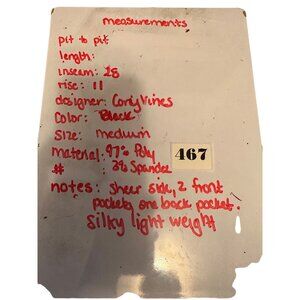 measurements
pit to pit
length:
inseam: 28
rise: 11
designer: Cordy Vines
Color: Black
Size: medium
Material: 97% Poly
#: 3% Spandex
467
notes: Sheer side, 2 front
pockets one back pocket.
Silky light weight